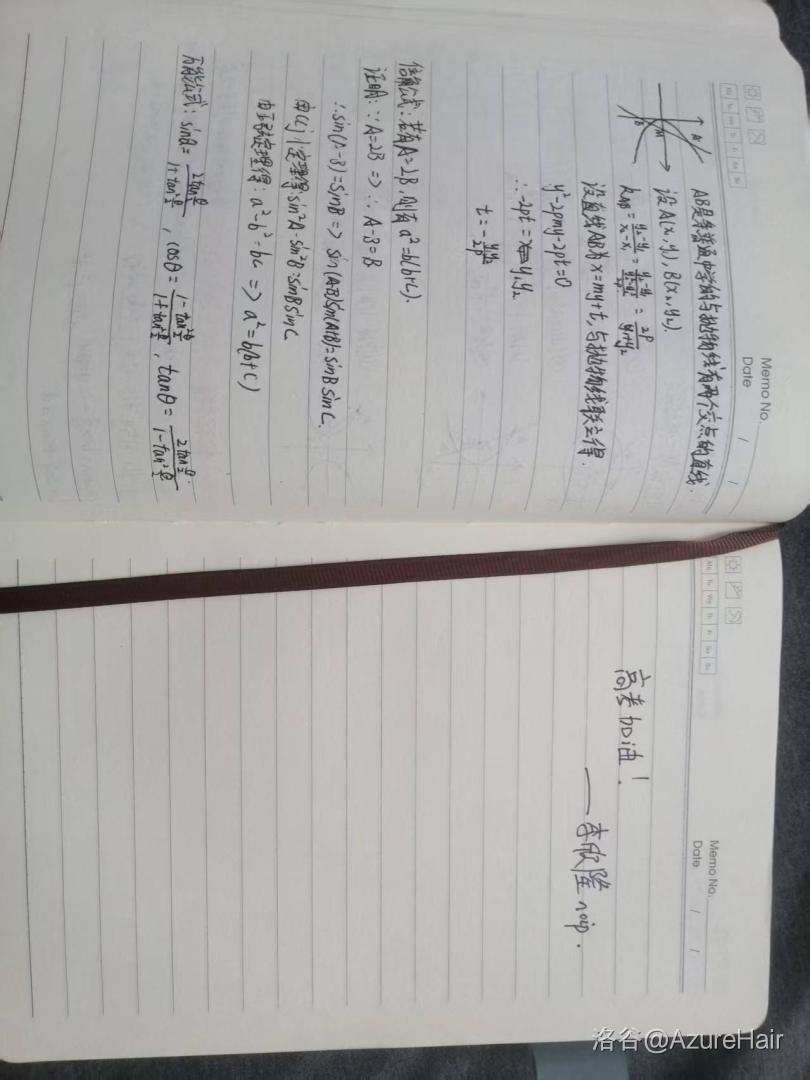 Memo No.
Date / /
Mo Tu We Th Fr Sa Su
AB是条普通中学的与抛物线有两个交点的直线.
A
M
B
设A(x₁,y₁),B(x₂,y₂).
k_AB = (y₂-y₁)/(x₂-x₁) = = 2p/(y₁+y₂)
设直线AB为x=my+t,与抛物线联立得.
y²-2pmy-2pt=0
∴-2pt = y₁y₂
t = -y₁y₂/2p
倍角公式:若有A=2B,则有a²=b(b+c).
证明:∵A=2B => ∴A-B=B
∴sin(A-B)=sinB => sin(A-B)sin(A+B)=sinB sinC.
由 定理得:sin²A-sin²B=sinBsinC
由正弦定理得:a²-b²=bc => a²=b(b+c)
万能公式:sinθ= 2tan(θ/2)/(1+tan²(θ/2)) , cosθ= (1-tan²(θ/2))/(1+tan²(θ/2)) , tanθ= 2tan(θ/2)/(1-tan²(θ/2)).
Memo No.
Date / /
Mo Tu We Th Fr Sa Su
高考加油!
——李欣隆 noip.
洛谷@AzureHair